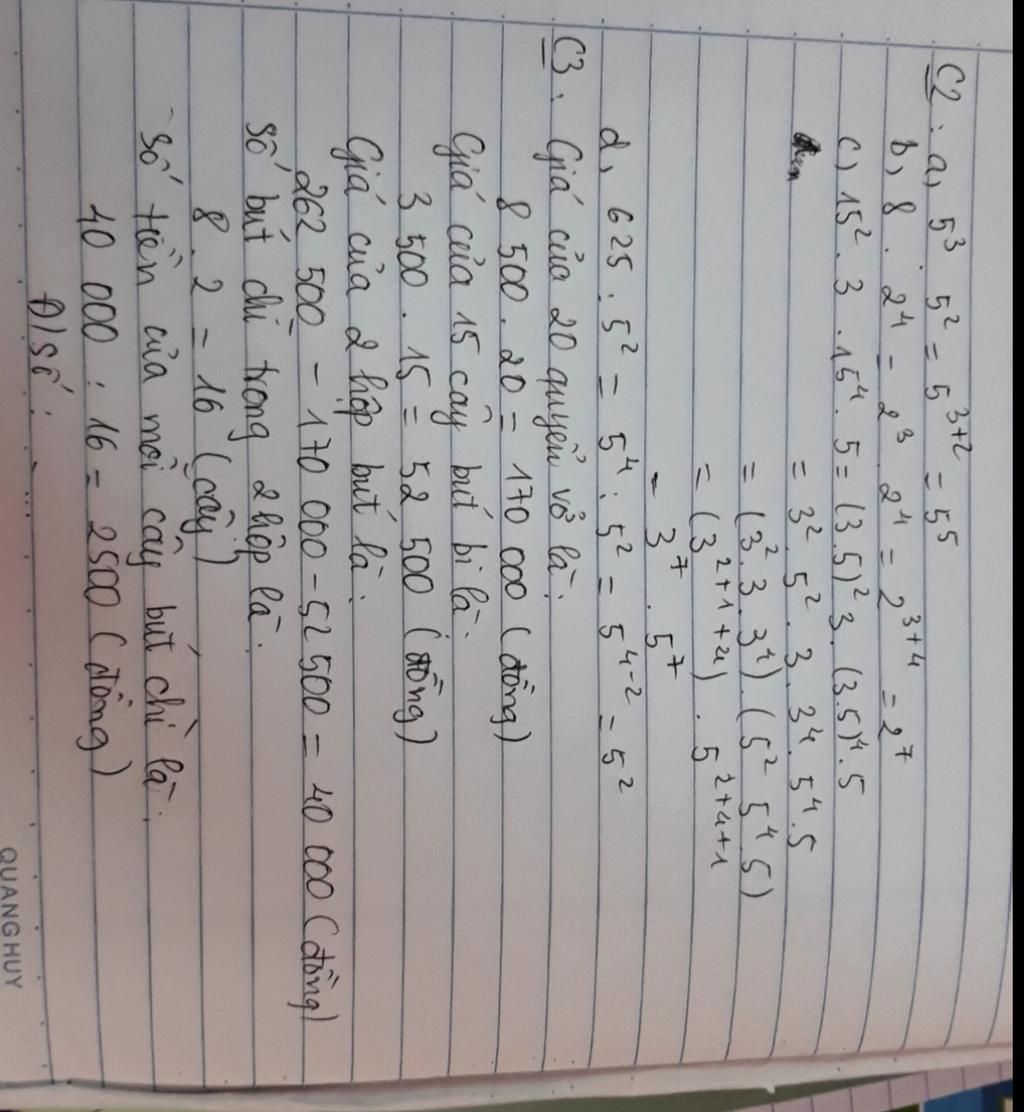 C2: a, 5³ 5² = 5³⁺² = 5⁵
b, 8 . 2⁴ = 2³ 2⁴ = 2³⁺⁴ = 2⁷
c, 15² . 3 . 15⁴ . 5 = (3.5)² 3 . (3.5)⁴ . 5
= 3² . 5² . 3 . 3⁴ . 5⁴ . 5
= (3² . 3 . 3⁴) . (5² 5⁴ 5)
= (3²⁺¹⁺⁴) . 5²⁺⁴⁺¹
= 3⁷ . 5⁷
d, 625 : 5² = 5⁴ : 5² = 5⁴⁻² = 5²
C3, Giá của 20 quyển vở là:
8 500 . 20 = 170 000 (đồng)
Giá của 15 cây bút bi là:
3 500 . 15 = 52 500 (đồng)
Giá của 2 hộp bút là:
262 500 – 170 000 – 52 500 = 40 000 (đồng)
Số bút chì trong 2 hộp là:
8 . 2 = 16 (cây)
Số tiền của mỗi cây bút chì là:
40 000 : 16 = 2500 (đồng)
Đ/số: ...
QUANG HUY